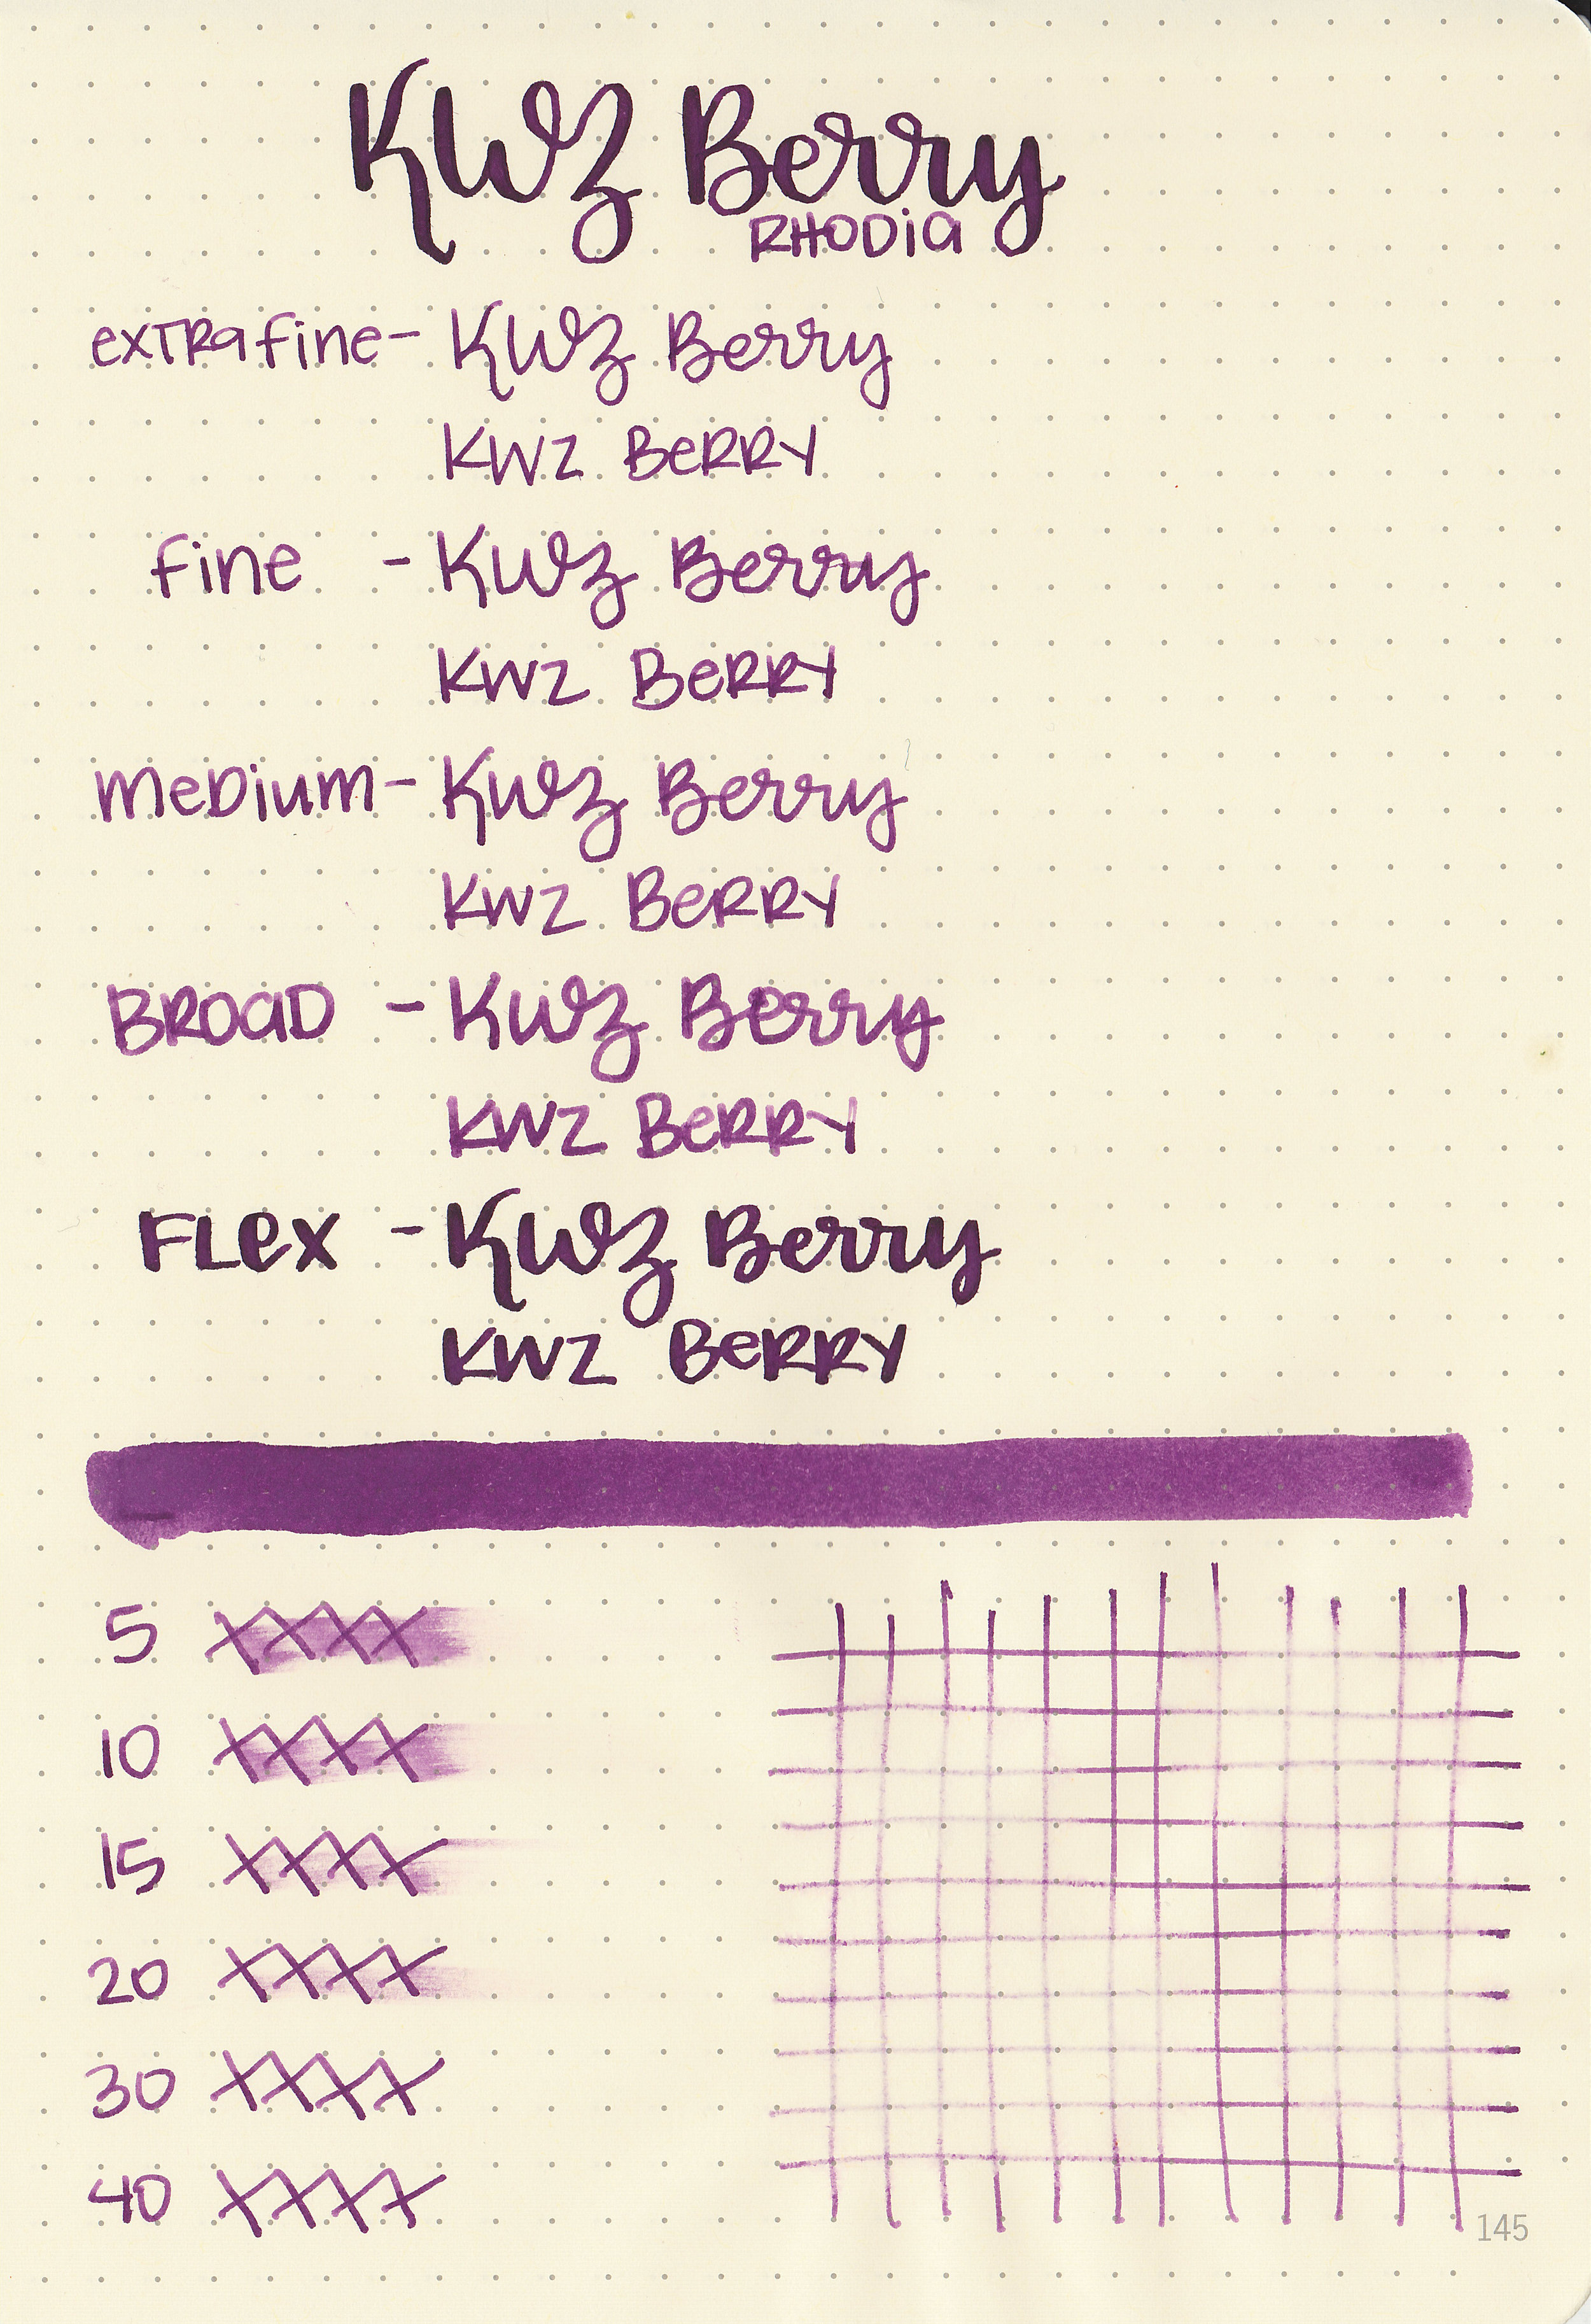 KWZ Berry
RHODia
exTRa fine - KWZ Berry
KWZ BeRRY
fine - KWZ Berry
KWZ BeRRY
meDium - KWZ Berry
KWZ BeRRY
BROaD - KWZ Berry
KWZ BeRRY
FLex - KWZ Berry
KWZ BeRRY
5 XXXX
10 XXXX
15 XXXX
20 XXXX
30 XXXX
40 XXXX
145